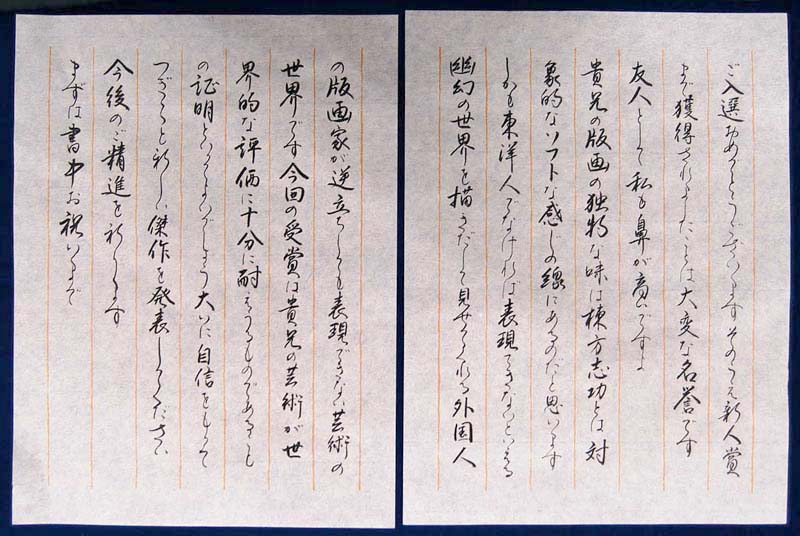 ご入選おめでとうございますそのうえ新人賞
まで獲得されましたことは大変な名誉です
友人として私も鼻が高いですよ
貴兄の版画の独特な味は棟方志功とは対
象的なソフトな感じの線にあるのだと思います
しかも東洋人でなければ表現できないといえる
幽幻の世界を描きだして見せてくれる外国人
の版画家が逆立ちしても表現できない芸術の
世界です今回の受賞は貴兄の芸術が世
界的な評価に十分に耐えうるものであること
の証明というものでしょう大いに自信をもって
つぎつぎと新しい傑作を発表してください
今後のご精進を祈ります
まずは書中お祝いまで